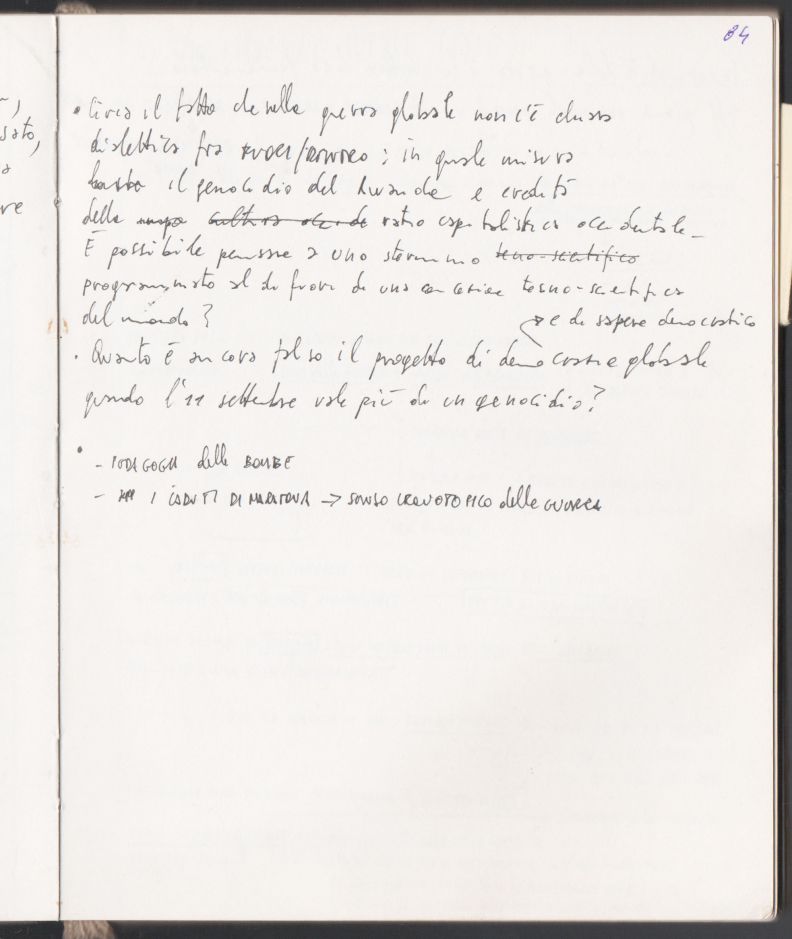 84
• Circa il fatto che nella guerra globale non c'è chiara
dialettica fra FUORI/DENTRO ; in quale misura
il genocidio del Rwanda è eredità
della cultura ratio capitalistica occidentale –
È possibile pensare a uno sterminio tecno-scientifico
programmato al di fuori di una tecno-scientifica
del mondo ?
→ e di sapere democratico
• Quanto è ancora falso il progetto di democrazia globale
quando l'11 settembre vale più di un genocidio?
•
– PEDAGOGIA delle BOMBE
– I CADUTI DI → SENSO CRONOTOPICO delle GUERRE
sato,
re